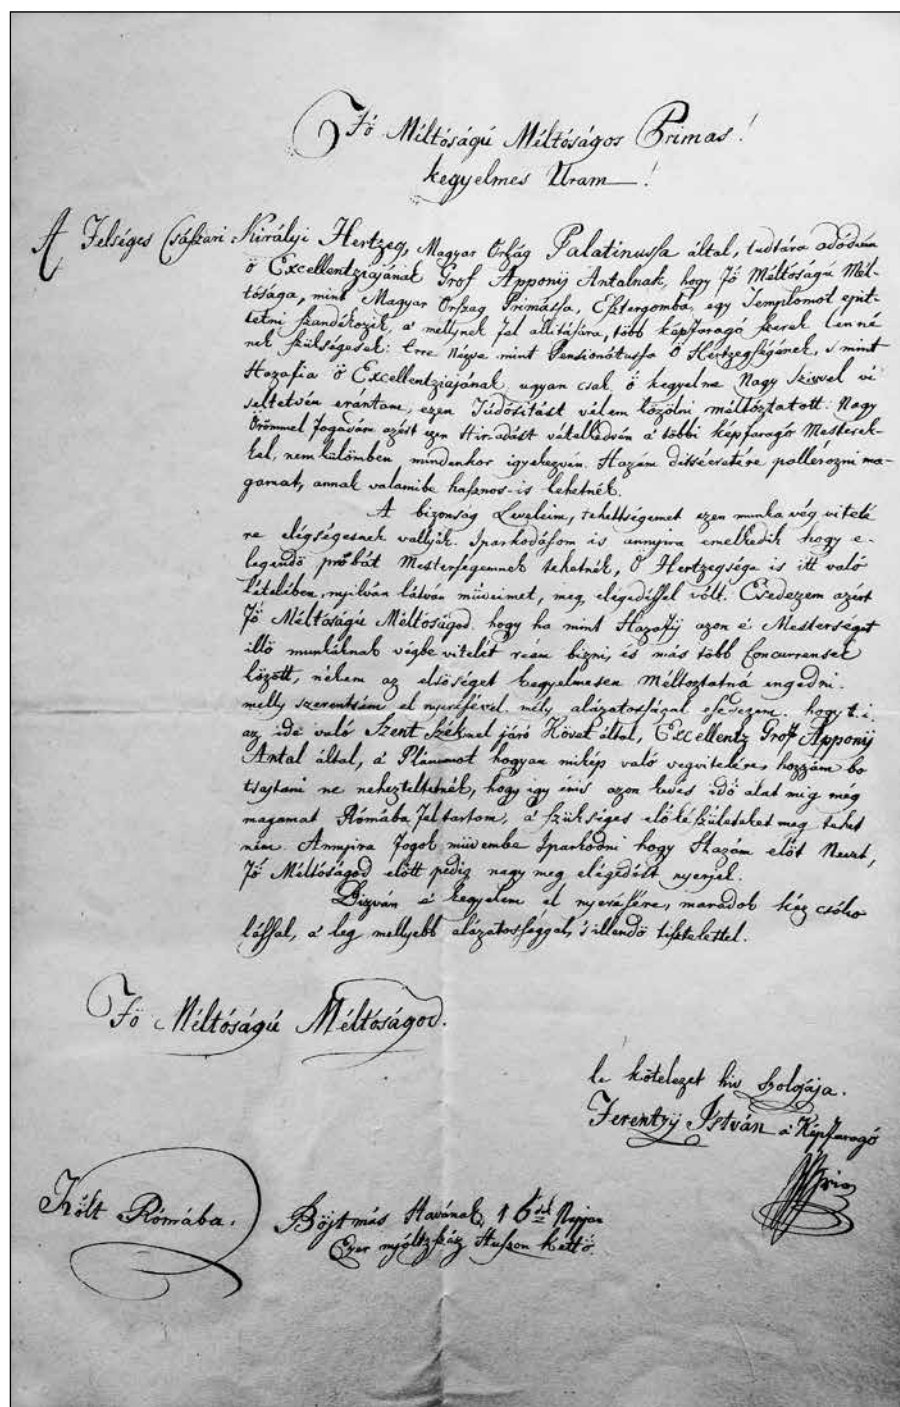 Fő Méltóságú Méltóságos Primas!
kegyelmes Uram!
A Felséges Császari Királyi Hertzeg, Magyar Orság Palatinussa által, tudtára adódván
ő Excellentziajának Grof Apponÿ Antalnak, hogy Fő Méltóságú Mél-
tósága, mint Magyar Orszag Primássa, Esztergomba, egy Templomot epit-
tetni szandékozik, á mellynek fel állitására, több képfaragó szerek lenné
nek szükségesek: Erre Nézve mint Pensionátussa Ő Hertzegségének, s mint
Hazafia ő Excellentziajának ugyan csak ő kegyelme Nagy szivvel vi
seltetvén erántam, ezen Tudósitást vélem közölni méltóztatott: Nagy
Örömmel fogadám azért ezen Hir-adást vételkedvén á többi képfaragó Mesterek-
kel, nem külömben mindenkor igyekezvén Hazám ditséretére pallérozni ma-
gamat, annak valamibe hasznos-is lehetnék.
A bizonság Leveleim, tehettségemet ezen munka vég vitelé
re elégségesnek vallyák. Iparkodásom is annyira emelkedik hogy e-
legendő próbát Mesterségemnek tehetnék, Ő Hertzegsége is itt való
lételében, nyilván látván müveimet, meg elegedéssel vólt. Esedezem azért
Fő Méltóságú Méltóságod hogy ha mint Hazafÿ azon é Mesterséget
illő munkáknak végbe vitelét reám bizni, és más több Concurrensek
között, nékem az elsőséget kegyelmesen Méltoztatná engedni.
melly szerentsém el nyerésével mély alázatosságal esedezem hogy t. i.
az ide való Szent Széknél járó Követ által, Excellentz Grof Apponÿ
Antal által, á Plánumot hogyan mikép való vegvitelére, hozzám bo
tsajtani ne nehezteltetnék, hogy igy énis azon kevés idő alat mig még
magamat Rómába fel tartom, á szükséges elő készületeket meg tehet
ném. Annyira fogok müvembe Iparkodni hogy Hazám előt Nevet,
Fő Méltóságod előtt pedig nagy meg elégedést nyerjek.
Bizván á kegyelem el nyerésére, maradok kéz csóko
lással, á leg mellyebb alázatossággal, s illendő tisztelettel.
Fő Méltóságú Méltóságod.
le kötelezet hiv szolgája.
Ferentzÿ István á Képfaragó
Költ Rómába.
Böjtmás Havának 16dik Napján
Ezer nyóltzszáz Huszon kettő.